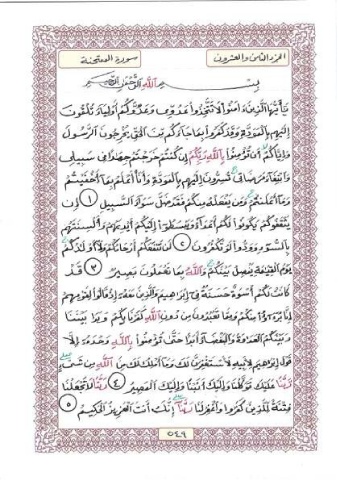 الجزء الثامن والعشرون
سورة الممتحنة
بسم الله الرحمن الرحيم
يَا أَيُّهَا الَّذِينَ آمَنُوا لَا تَتَّخِذُوا عَدُوِّي وَعَدُوَّكُمْ أَوْلِيَاءَ تُلْقُونَ
إِلَيْهِم بِالْمَوَدَّةِ وَقَدْ كَفَرُوا بِمَا جَاءَكُم مِّنَ الْحَقِّ يُخْرِجُونَ الرَّسُولَ
وَإِيَّاكُمْ أَن تُؤْمِنُوا بِاللَّهِ رَبِّكُمْ إِن كُنتُمْ خَرَجْتُمْ جِهَادًا فِي سَبِيلِي
وَابْتِغَاءَ مَرْضَاتِي تُسِرُّونَ إِلَيْهِم بِالْمَوَدَّةِ وَأَنَا أَعْلَمُ بِمَا أَخْفَيْتُمْ
وَمَا أَعْلَنتُمْ وَمَن يَفْعَلْهُ مِنكُمْ فَقَدْ ضَلَّ سَوَاءَ السَّبِيلِ ١ إِن
يَثْقَفُوكُمْ يَكُونُوا لَكُمْ أَعْدَاءً وَيَبْسُطُوا إِلَيْكُمْ أَيْدِيَهُمْ وَأَلْسِنَتَهُم
بِالسُّوءِ وَوَدُّوا لَوْ تَكْفُرُونَ ٢ لَن تَنفَعَكُمْ أَرْحَامُكُمْ وَلَا أَوْلَادُكُمْ
يَوْمَ الْقِيَامَةِ يَفْصِلُ بَيْنَكُمْ وَاللَّهُ بِمَا تَعْمَلُونَ بَصِيرٌ ٣ قَدْ
كَانَتْ لَكُمْ أُسْوَةٌ حَسَنَةٌ فِي إِبْرَاهِيمَ وَالَّذِينَ مَعَهُ إِذْ قَالُوا لِقَوْمِهِمْ
إِنَّا بُرَآءُ مِنكُمْ وَمِمَّا تَعْبُدُونَ مِن دُونِ اللَّهِ كَفَرْنَا بِكُمْ وَبَدَا بَيْنَنَا
وَبَيْنَكُمُ الْعَدَاوَةُ وَالْبَغْضَاءُ أَبَدًا حَتَّى تُؤْمِنُوا بِاللَّهِ وَحْدَهُ إِلَّا
قَوْلَ إِبْرَاهِيمَ لِأَبِيهِ لَأَسْتَغْفِرَنَّ لَكَ وَمَا أَمْلِكُ لَكَ مِنَ اللَّهِ مِن شَيْءٍ
رَّبَّنَا عَلَيْكَ تَوَكَّلْنَا وَإِلَيْكَ أَنَبْنَا وَإِلَيْكَ الْمَصِيرُ ٤ رَبَّنَا لَا تَجْعَلْنَا
فِتْنَةً لِّلَّذِينَ كَفَرُوا وَاغْفِرْ لَنَا رَبَّنَا إِنَّكَ أَنتَ الْعَزِيزُ الْحَكِيمُ ٥
٥٤٩